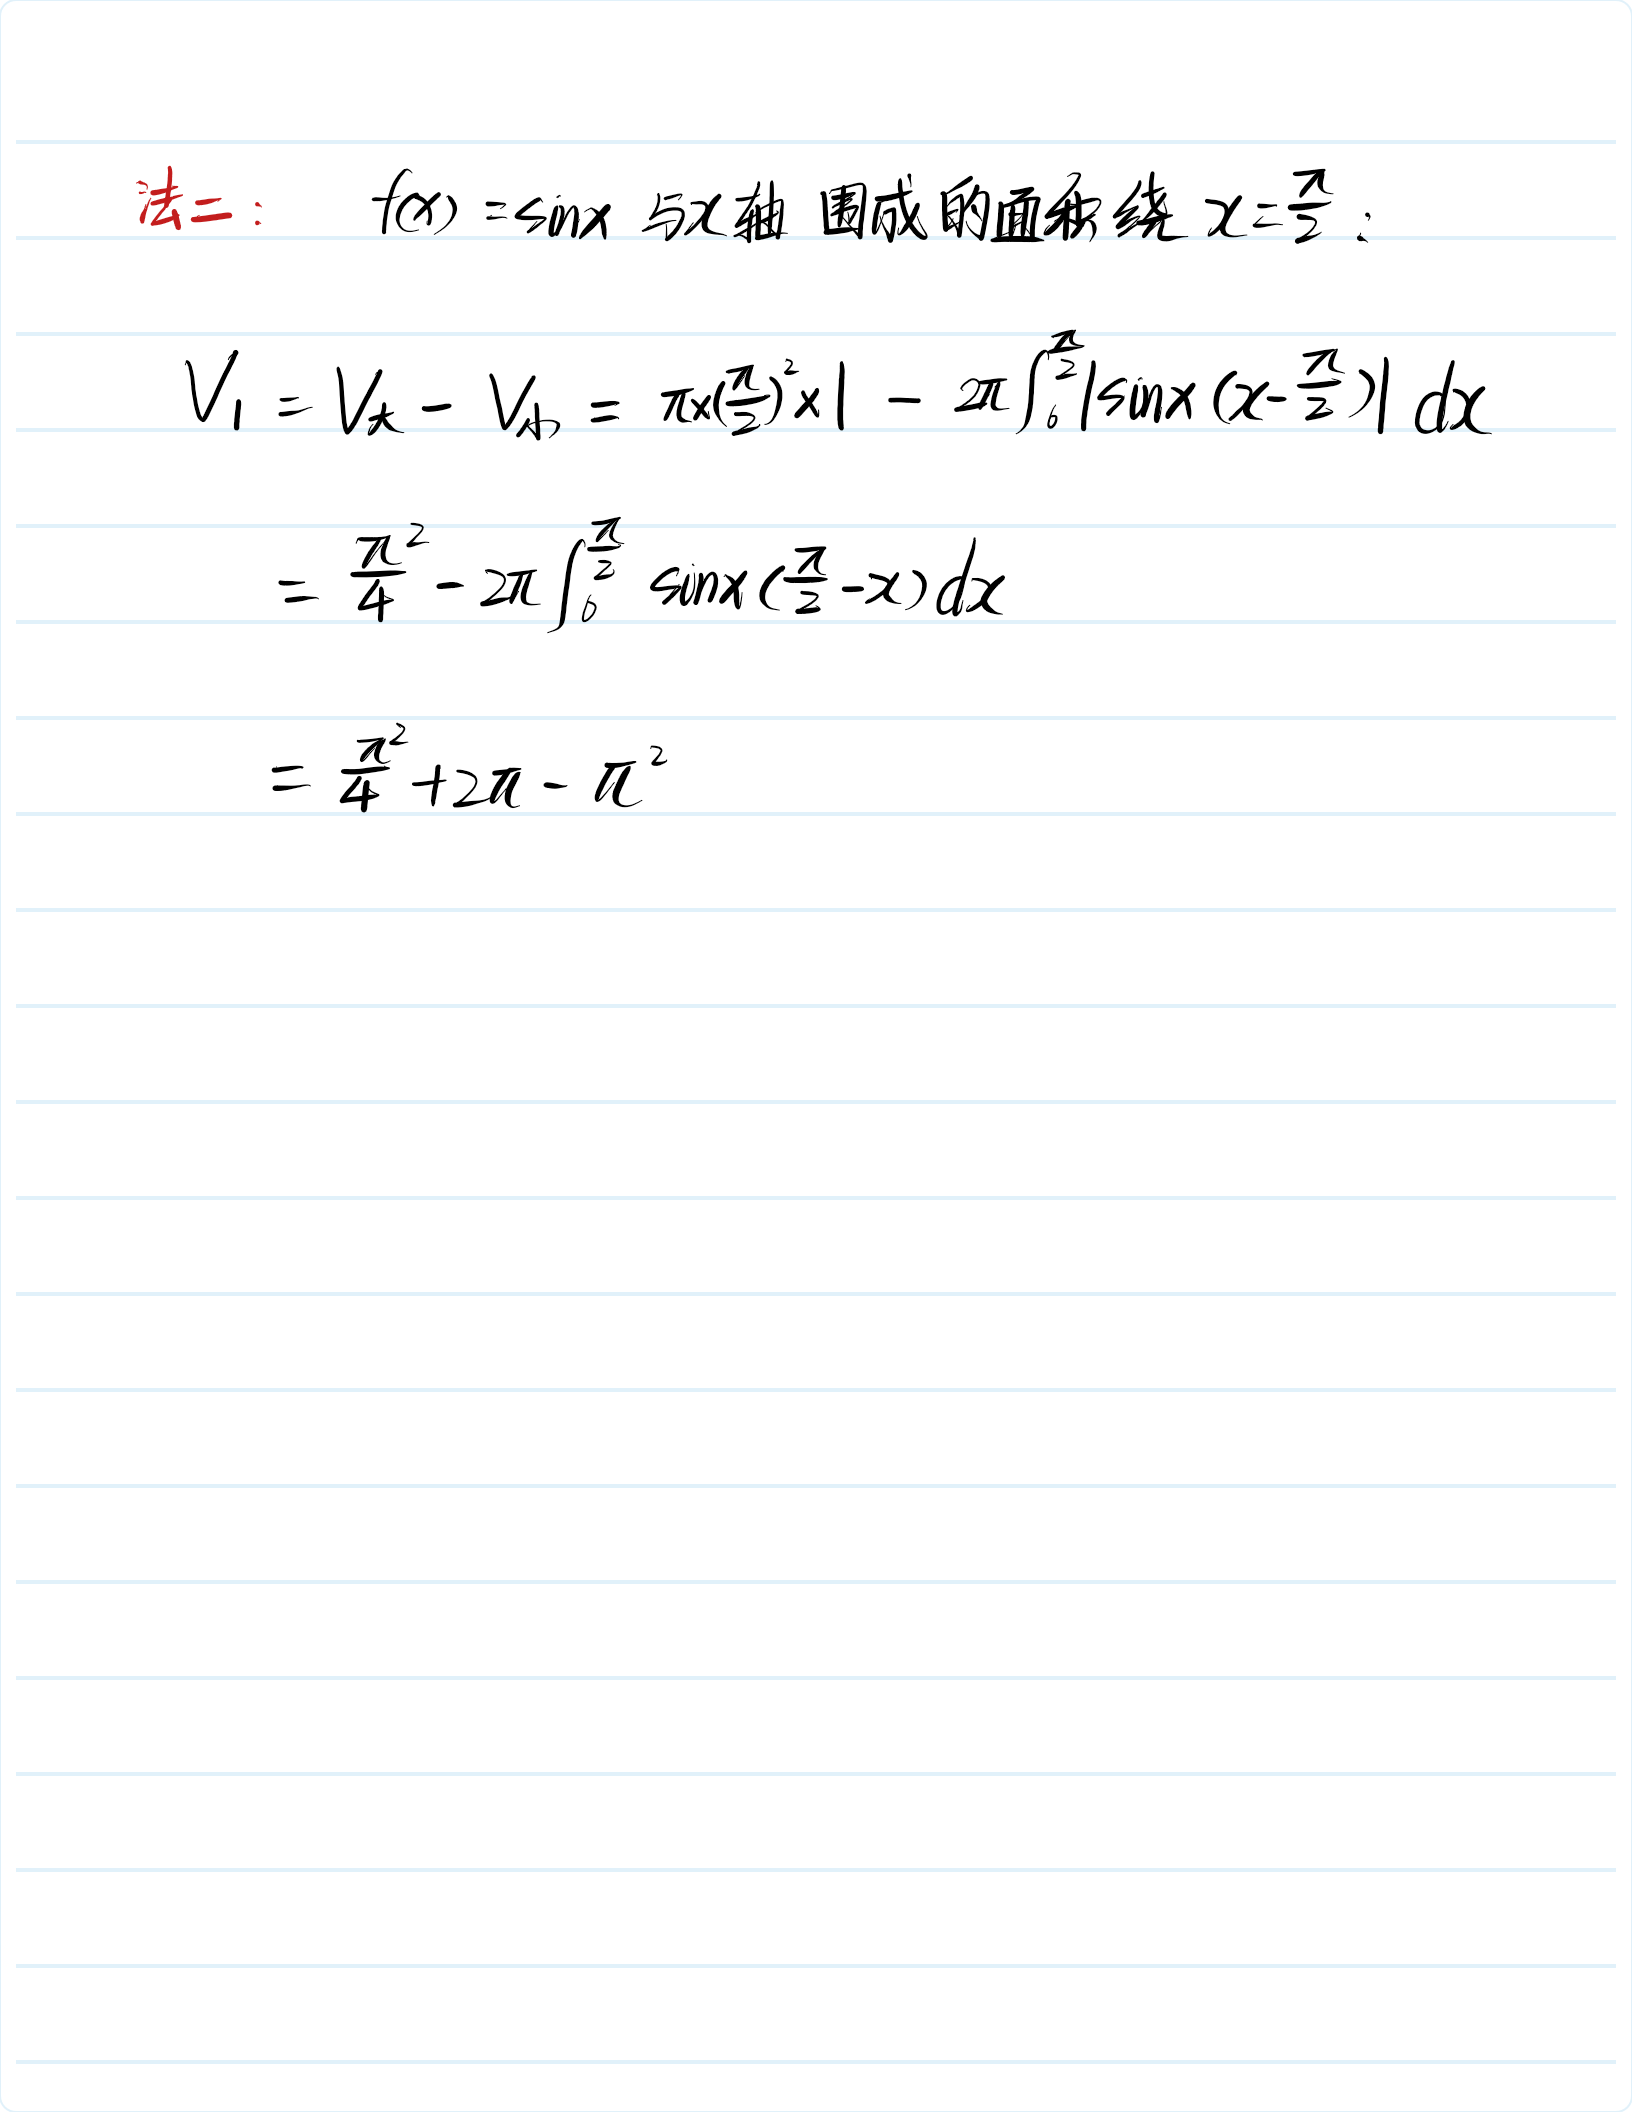 法二： f(x) = sinx 与x轴 围成的面积绕 x=π/2：
V₁ = V大 - V小 = π×(π/2)²×1 - 2π∫₀^(π/2) |sinx (x-π/2)| dx
= π²/4 - 2π∫₀^(π/2) sinx (π/2 - x) dx
= π²/4 + 2π - π²